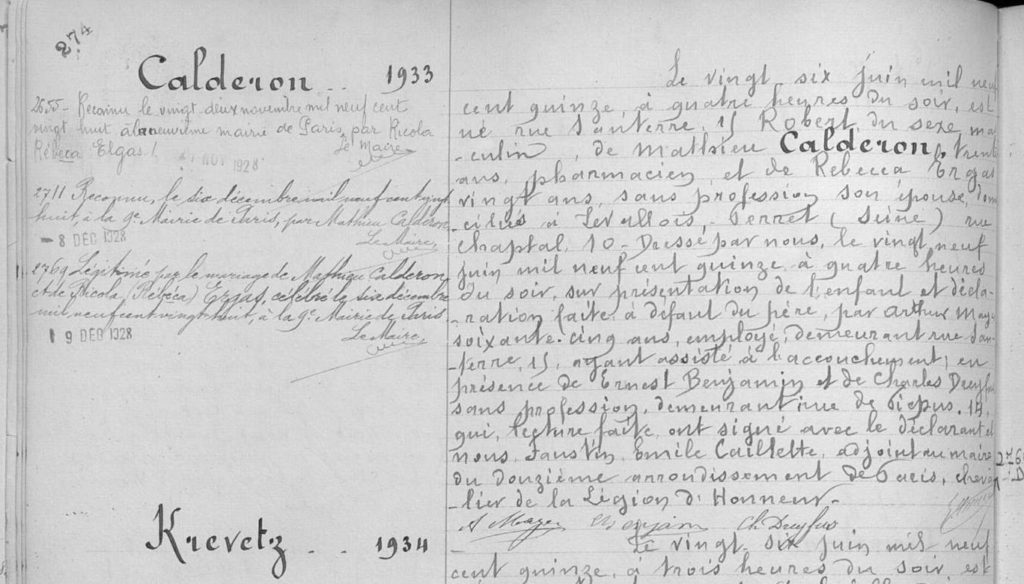 274
Calderon .. 1933
2655 - Reconnu le vingt deux novembre mil neuf cent
vingt huit à la neuvième mairie de Paris, par Ricola
Rébéca Elgas !
Le Maire,
NOV 1928
2711 Reconnu, le six décembre mil neuf cent vingt
huit, à la 9e Mairie de Paris, par Mathieu Calderon
Le Maire,
- 8 DEC 1928
2769 Légitimé par le mariage de Mathieu Calderon
et de Ricola (Rébéca) Ergas, célébré le six décembre
mil neuf cent vingt huit, à la 9e Mairie de Paris
Le Maire,
19 DEC 1928
Krevetz .. 1934
Le vingt six juin mil neuf
cent quinze, à quatre heures du soir, est
né rue Santerre, 15 Robert, du sexe mas
-culin, de Mathieu Calderon, trente
ans, pharmacien et de Rébecca Ergas
vingt ans, sans profession son épouse, domi
-ciliés à Levallois, Perret (Seine) rue
Chaptal, 10 - Dressé par nous, le vingt neuf
juin mil neuf cent quinze à quatre heures
du soir, sur présentation de l'enfant et décla-
-ration faite, à défaut du père, par Arthur Mayer
soixante-cinq ans, employé, demeurant rue San-
-terre, 15, ayant assisté à l'accouchement; en
présence de Ernest Benjamin et de Charles Dreyfus
sans profession, demeurant rue de Picpus,
qui, lecture faite, ont signé avec le déclarant et
nous, Faustin, Emile Caillette, adjoint au maire
du douzième arrondissement de Paris, cheva
-lier de la Légion d'Honneur -
A Mayer Benjamin Ch Dreyfus
Le vingt six juin mil neuf
cent quinze, à trois heures du soir est